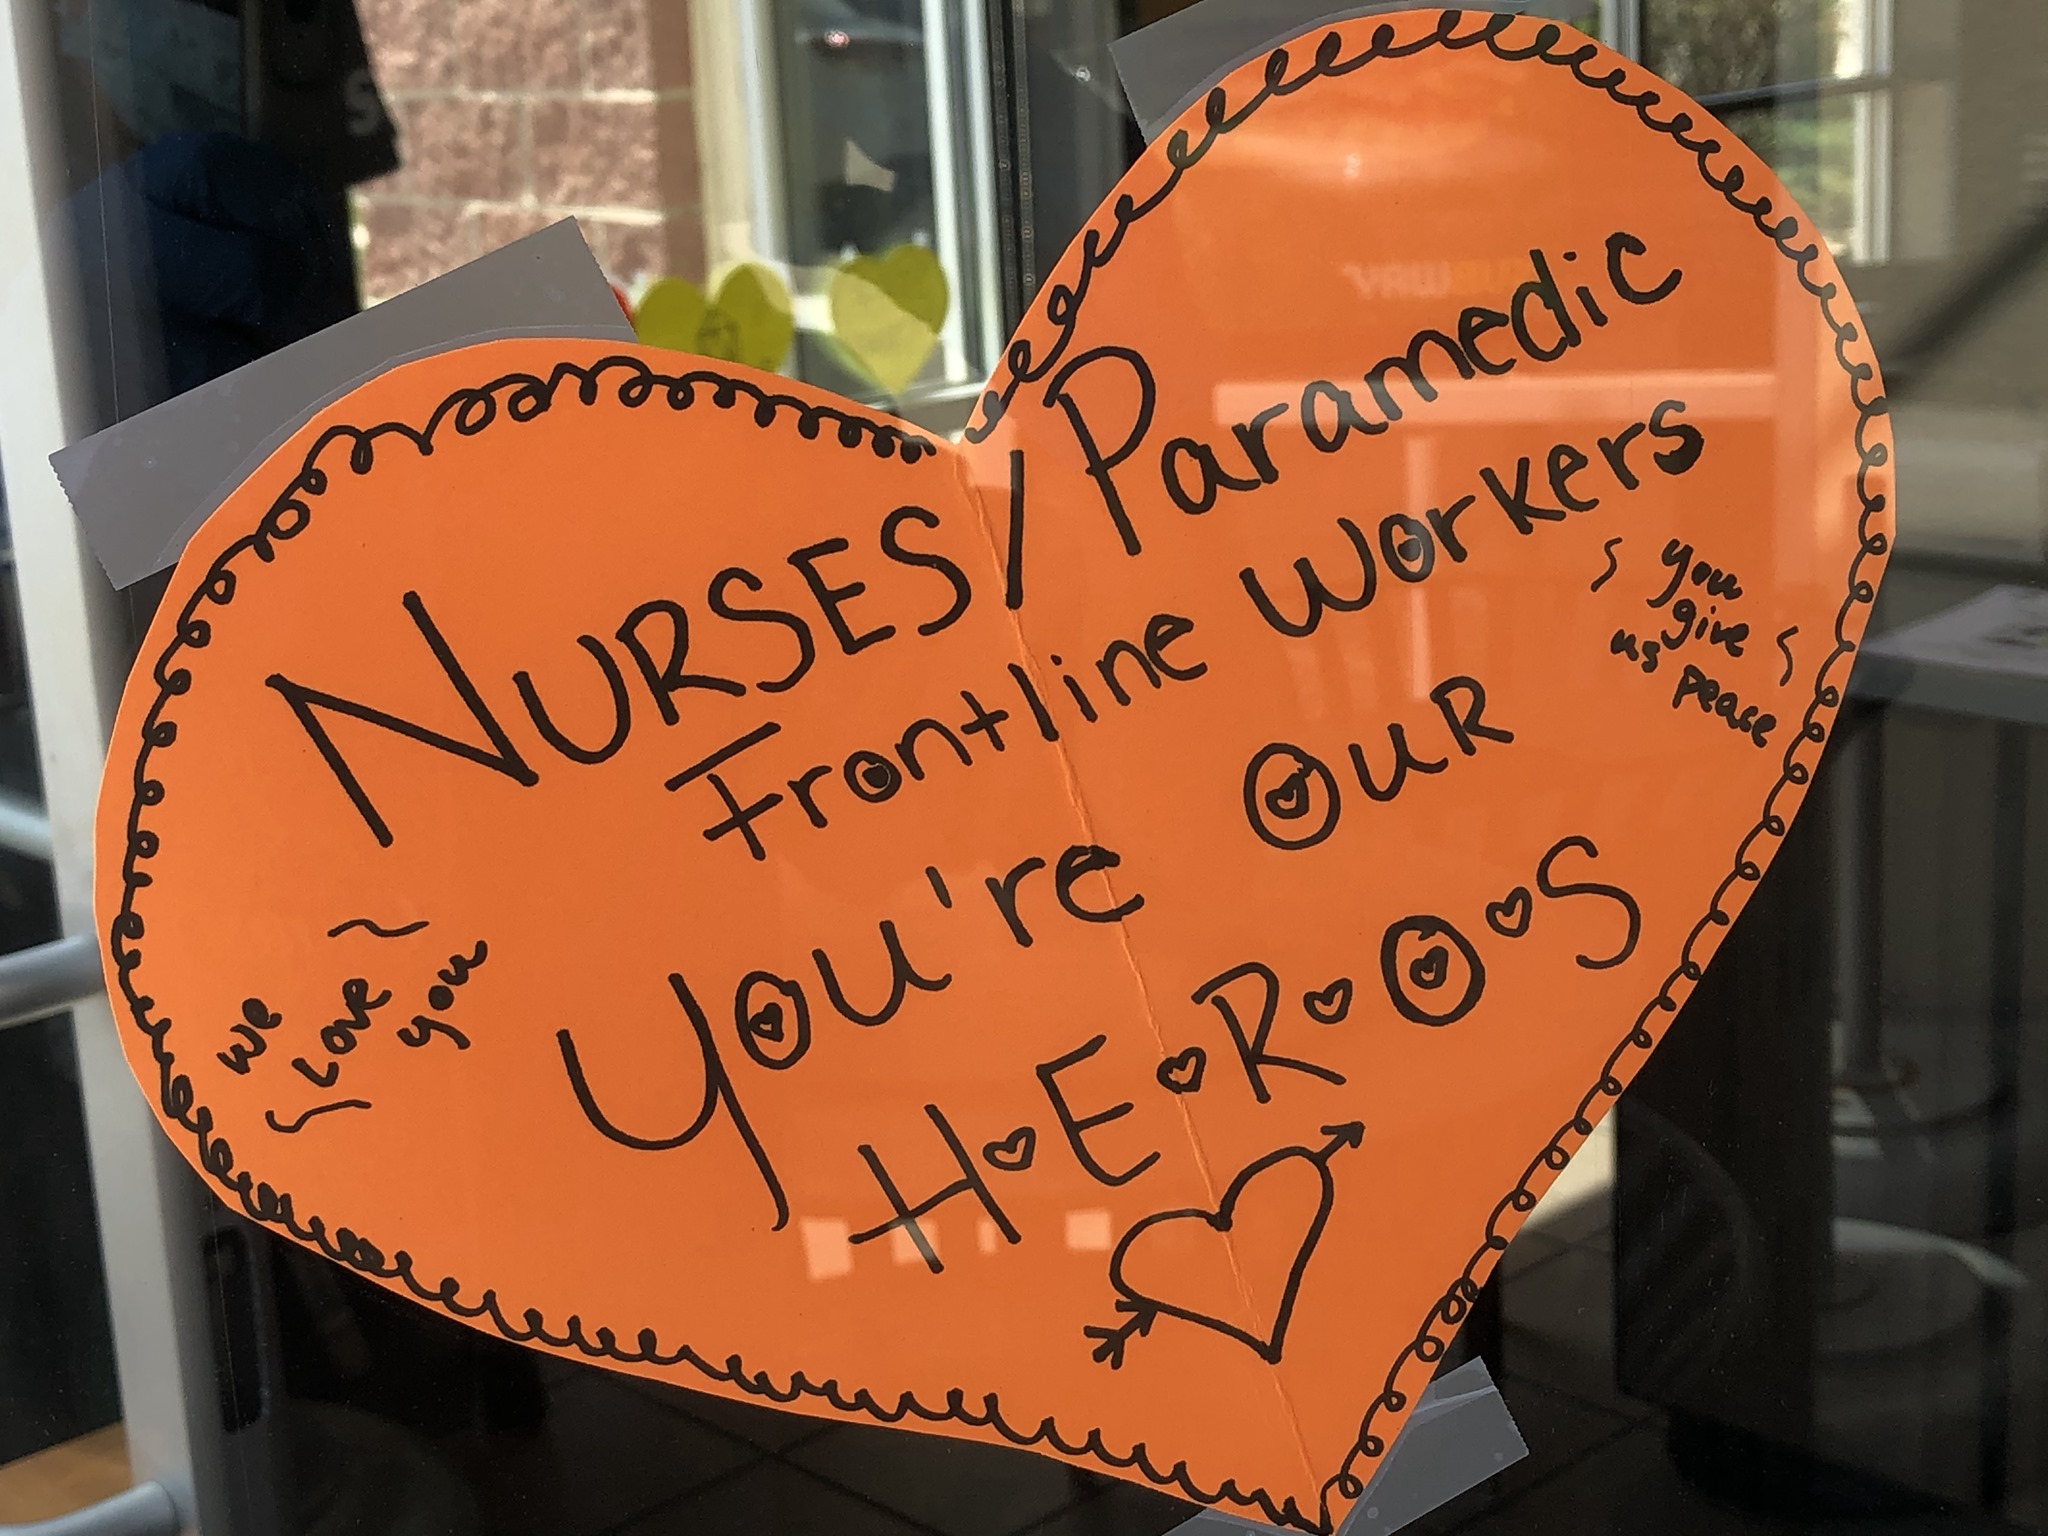 NURSES/Paramedic
Frontline Workers
You're OUR
H·E·R·O·S
we
Love
you
you
give
us peace